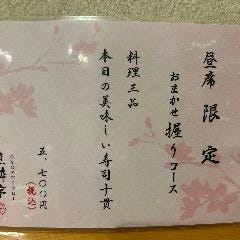 昼席限定
おまかせ握りコース
料理三品
本日の美味しい寿司十貫
五、七〇〇円
(税込)